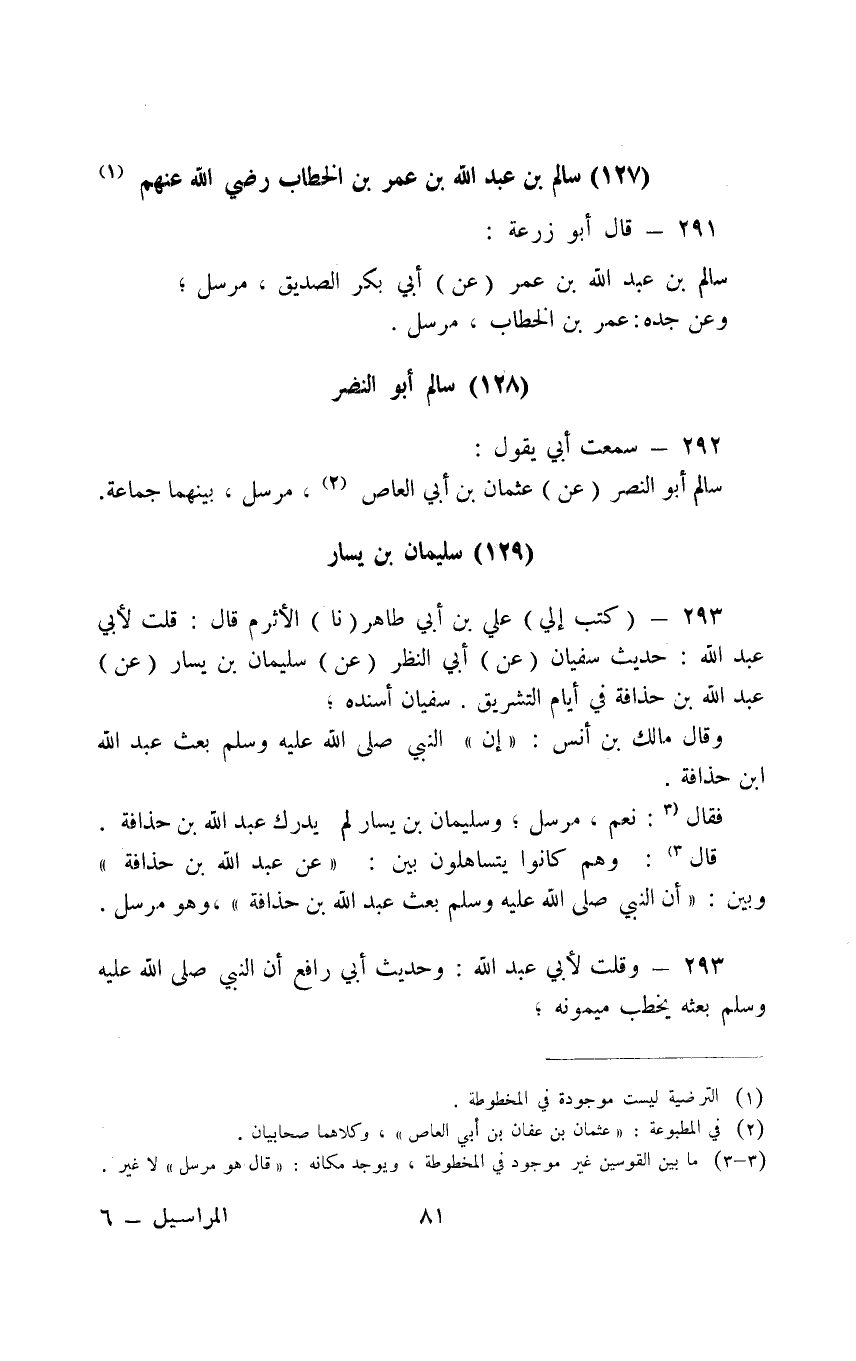 (١٢٧) سالم بن عبد الله بن عمر بن الخطاب رضي الله عنهم (١)
٢٩١ – قال أبو زرعة :
سالم بن عبد الله بن عمر ( عن ) أبي بكر الصديق ، مرسل ؛
وعن جده : عمر بن الخطاب ، مرسل .
(١٢٨) سالم أبو النضر
٢٩٢ – سمعت أبي يقول :
سالم أبو النصر ( عن ) عثمان بن أبي العاص (٢) ، مرسل ، بينهما جماعة.
(١٢٩) سليمان بن يسار
٢٩٣ – ( كتب إلي ) علي بن أبي طاهر ( نا ) الأثرم قال : قلت لأبي
عبد الله : حديث سفيان ( عن ) أبي النظر ( عن ) سليمان بن يسار ( عن )
عبد الله بن حذافة في أيام التشريق . سفيان أسنده ؛
وقال مالك بن أنس : « إن » النبي صلى الله عليه وسلم بعث عبد الله
ابن حذافة .
فقال ٣) : نعم ، مرسل ؛ وسليمان بن يسار لم يدرك عبد الله بن حذافة .
قال ٣) : وهم كانوا يتساهلون بين : « عن عبد الله بن حذافة »
وبين : « أن النبي صلى الله عليه وسلم بعث عبد الله بن حذافة » ، وهو مرسل .
٢٩٣ – وقلت لأبي عبد الله : وحديث أبي رافع أن النبي صلى الله عليه
وسلم بعثه يخطب ميمونه ؛
(١) الترضية ليست موجودة في المخطوطة .
(٢) في المطبوعة : « عثمان بن عفان بن أبي العاص » ، وكلاهما صحابيان .
(٣-٣) ما بين القوسين غير موجود في المخطوطة ، ويوجد مكانه : « قال هو مرسل » لا غير .
٨١
المراسيل – ٦